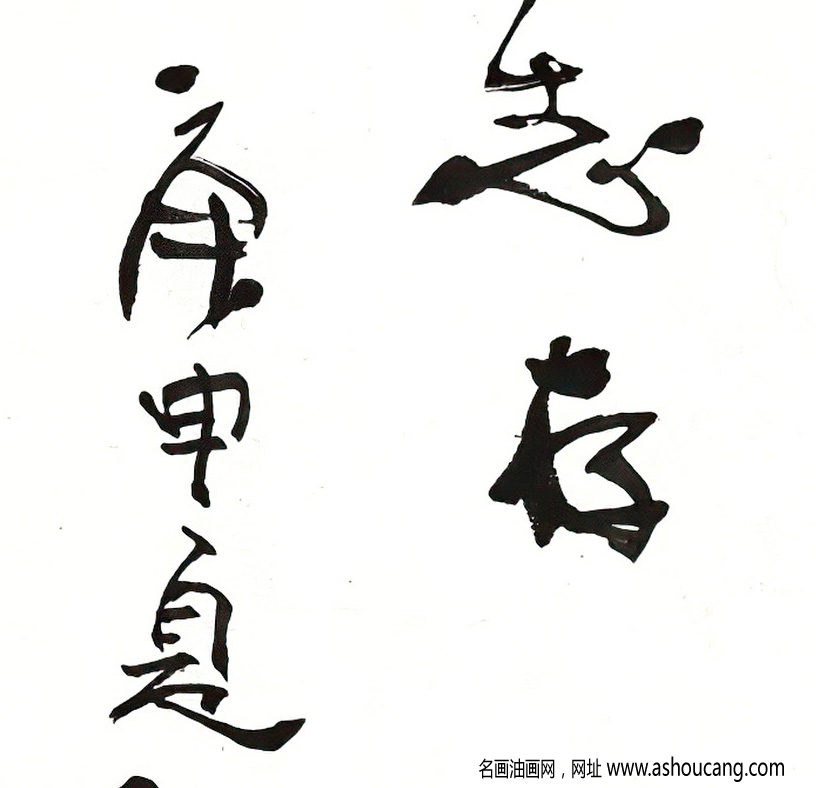 志存
庚申夏
名画油画网，网址 www.ashoucang.com